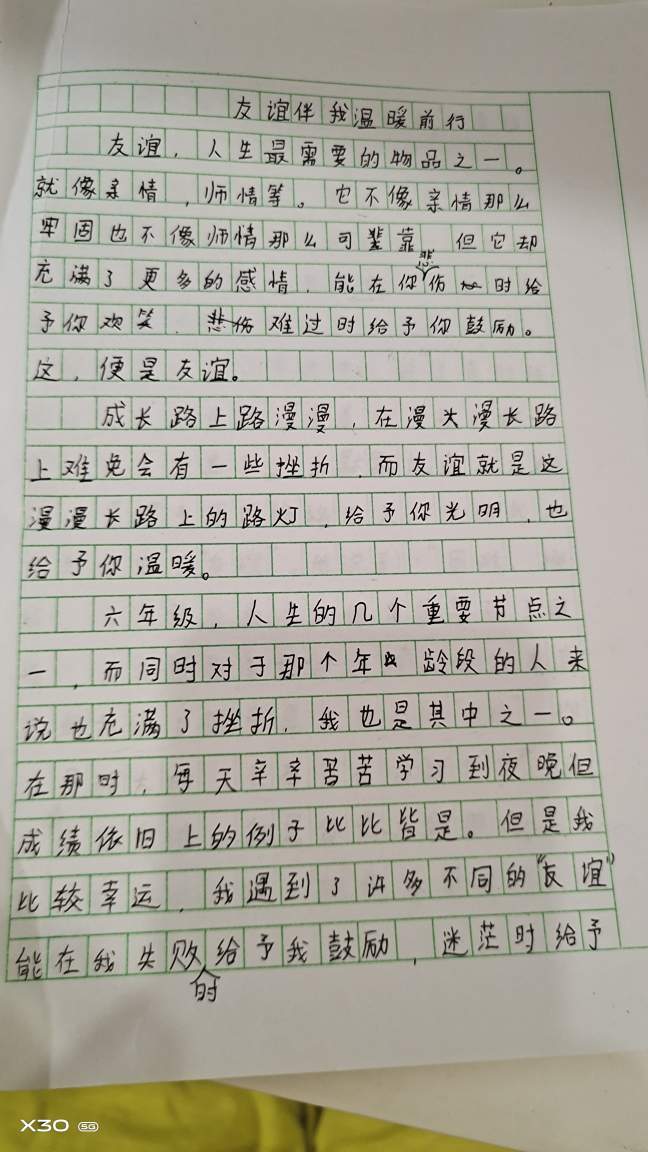 友谊伴我温暖前行
友谊，人生最需要的物品之一。
就像亲情，师情等。它不像亲情那么
牢固也不像师情那么可靠 但它却
充满了更多的感情，能在你悲伤时给
予你欢笑，难过时给予你鼓励。
这，便是友谊。
成长路上路漫漫，在漫漫长路
上难免会有一些挫折，而友谊就是这
漫漫长路上的路灯，给予你光明，也
给予你温暖。
六年级，人生的几个重要节点之
一，而同时对于那个年龄段的人来
说也充满了挫折，我也是其中之一。
在那时，每天辛辛苦苦学习到夜晚但
成绩依旧上的例子比比皆是。但是我
比较幸运，我遇到了许多不同的“友谊”
能在我失败时给予我鼓励，迷茫时给予
X30 5G